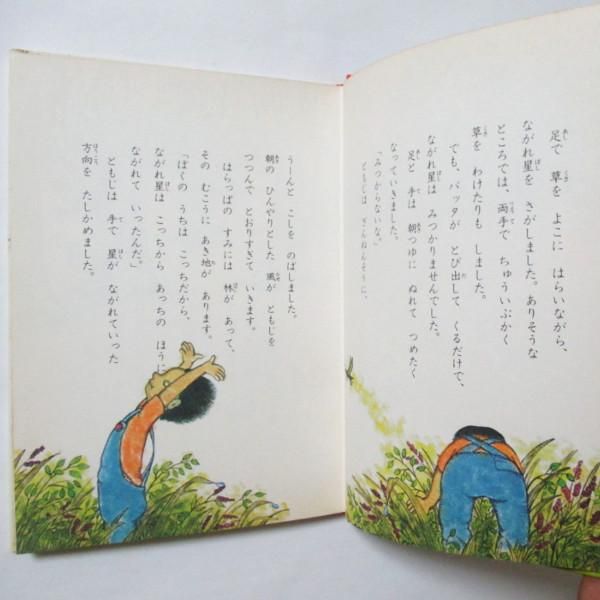 足で 草を よこに はらいながら、
ながれ星を さがしました。ありそうな
ところでは、両手で ちゅういぶかく
草を わけたりも しました。
でも、バッタが とび出して くるだけで、
ながれ星は みつかりませんでした。
足と 手は 朝つゆに ぬれて つめたく
なっていきました。
「みつからないな。」
ともじは ざんねんそうに、
うーんと こしを のばしました。
朝の ひんやりとした 風が ともじを
つつんで とおりすぎて いきます。
はらっぱの すみには 林が あって、
その むこうに あき地が あります。
「ぼくの うちは こっちだから、
ながれ星は こっちから あっちの ほうに
ながれて いったんだ。」
ともじは 手で 星が ながれていった
方向を たしかめました。